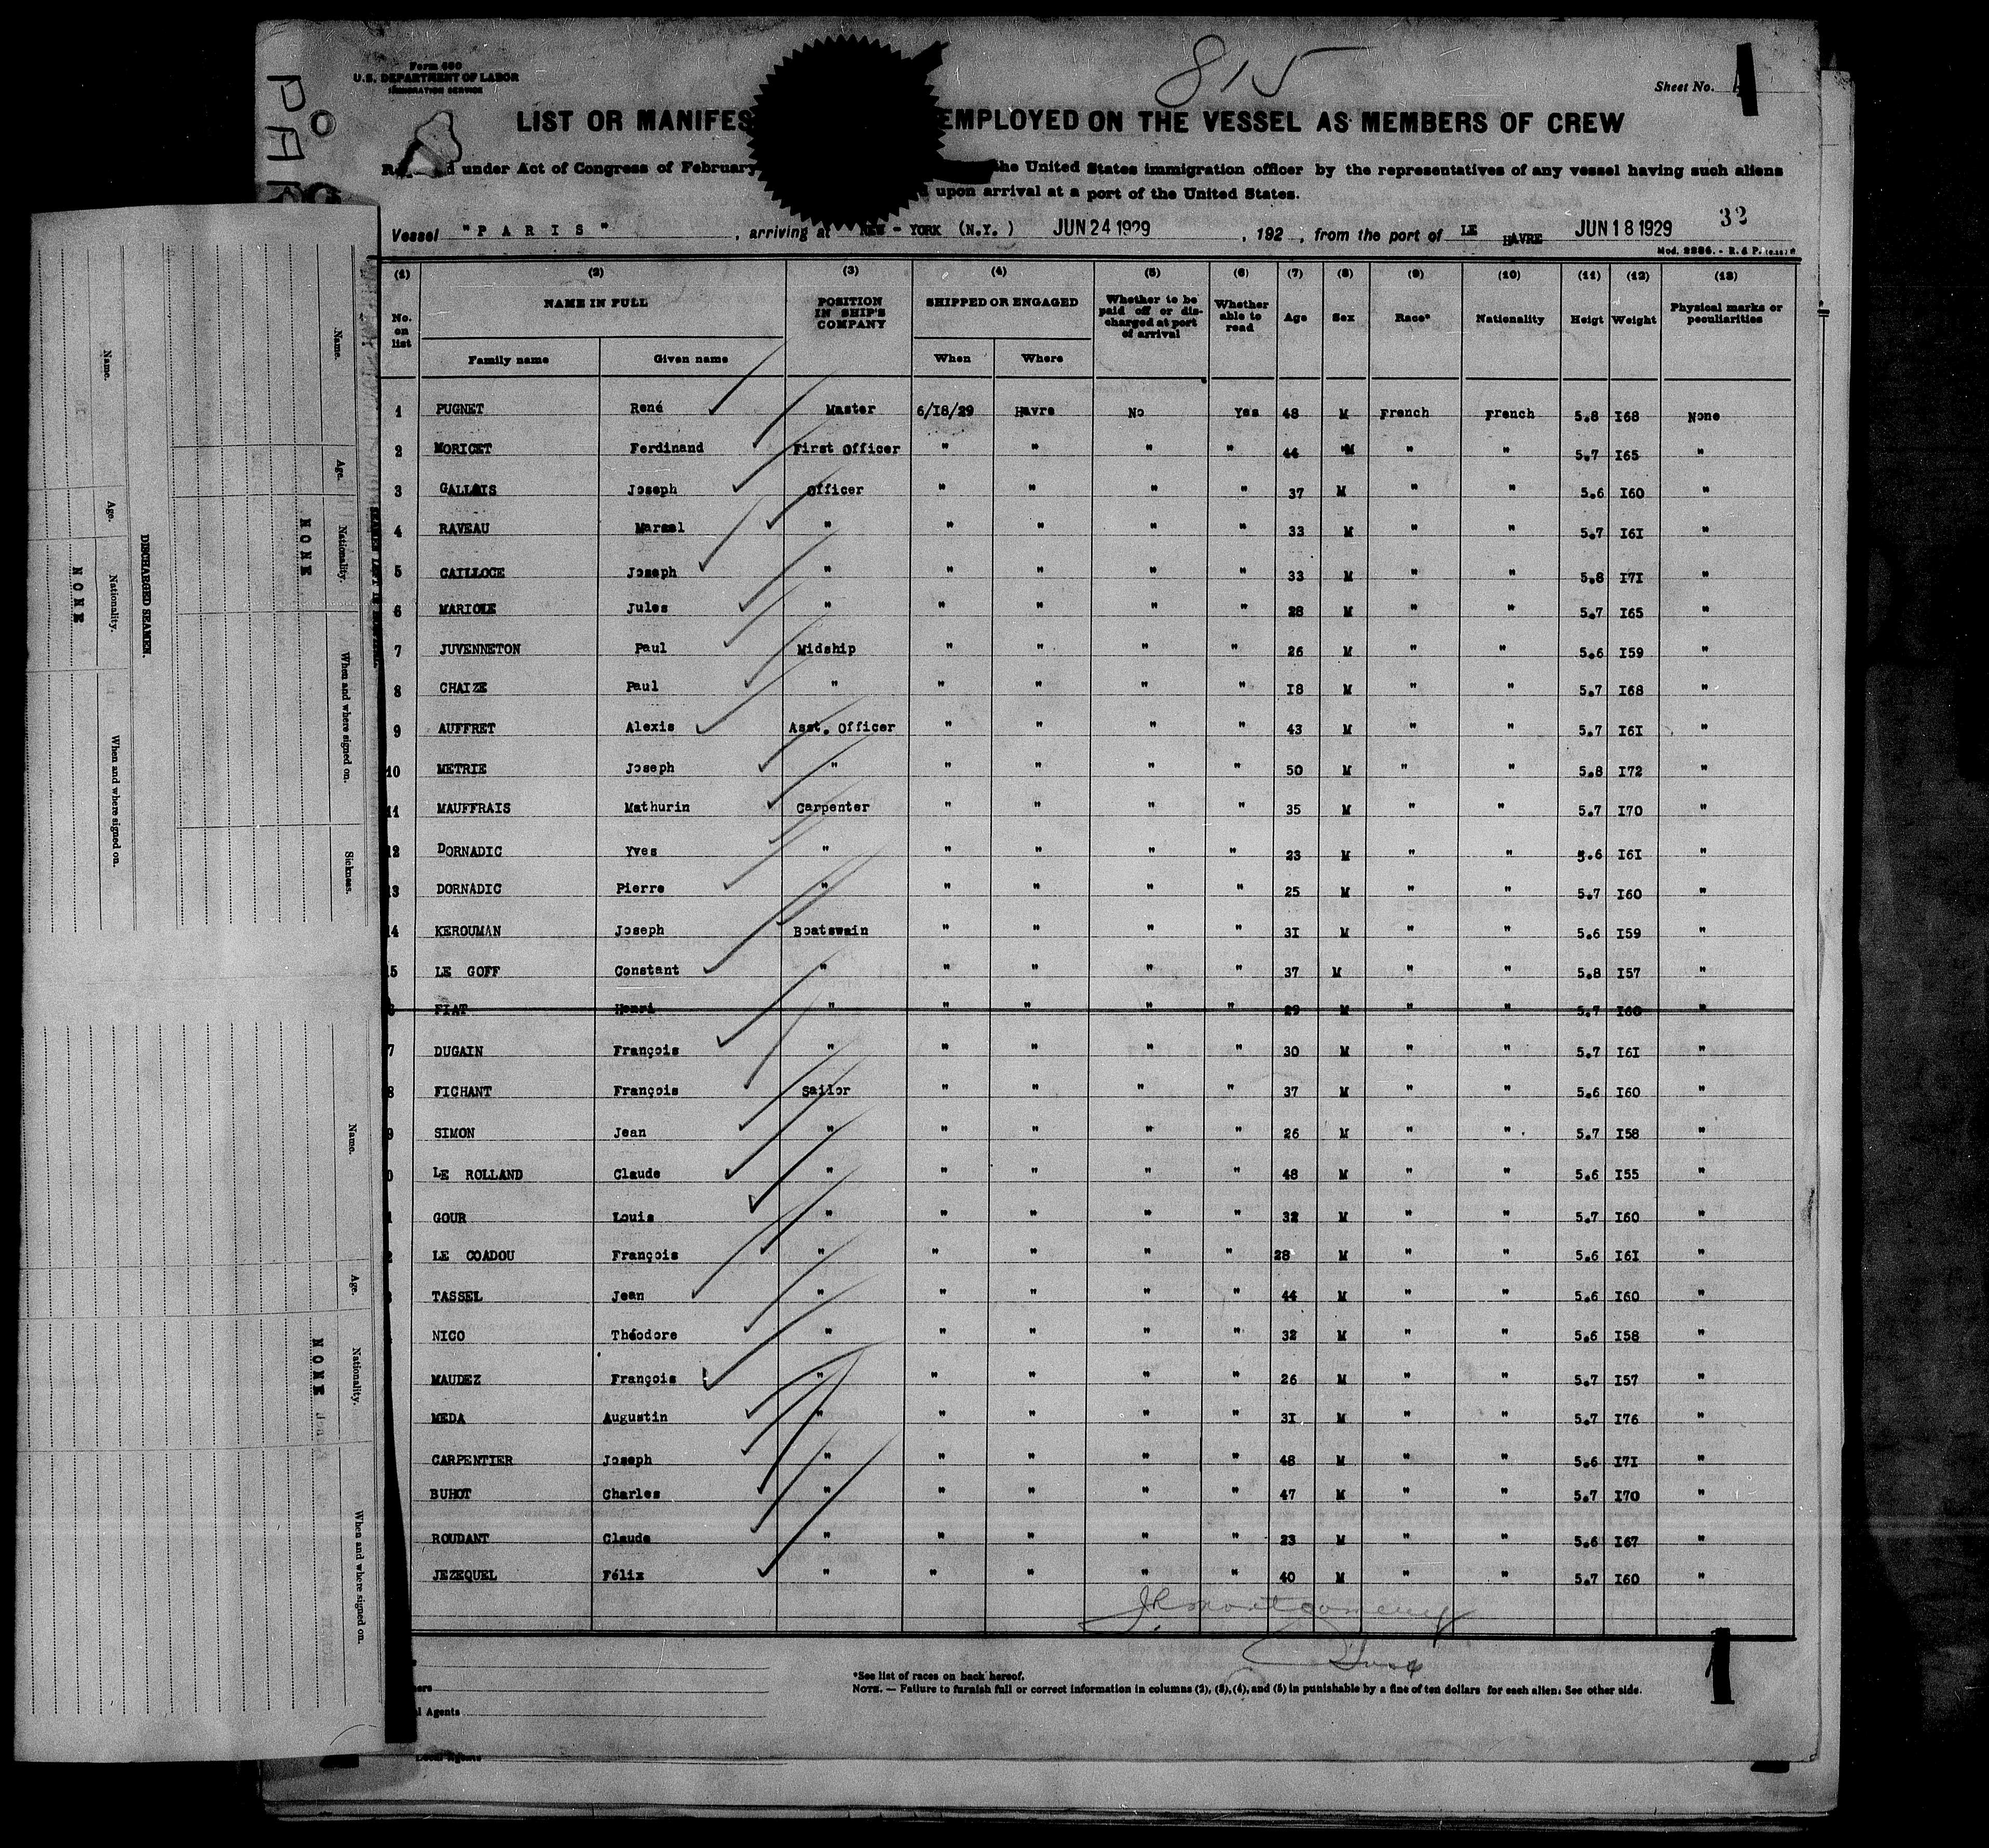 815
Form 680
U.S. DEPARTMENT OF LABOR
IMMIGRATION SERVICE
Sheet No.
LIST OR MANIFES EMPLOYED ON THE VESSEL AS MEMBERS OF CREW
under Act of Congress of February the United States immigration officer by the representatives of any vessel having such aliens
upon arrival at a port of the United States.
32
Vessel "PARIS", arriving at NEW-YORK (N.Y.) JUN 24 1929, 192 , from the port of LE HAVRE JUN 18 1929
Mod. 2226. - R. & P.
(1) (2) (3) (4) (5) (6) (7) (8) (9) (10) (11) (12) (13)
No. on list NAME IN FULL POSITION IN SHIP'S COMPANY SHIPPED OR ENGAGED Whether to be paid off or discharged at port of arrival Whether able to read Age Sex Race* Nationality Heigt Weight Physical marks or peculiarities
Family name Given name When Where
1 PUGNET René Master 6/18/29 Havre No Yes 48 M French French 5.8 I68 None
2 MORICET Ferdinand First Officer " " " " 44 M " " 5.7 I65 "
3 GALLAIS Joseph Officer " " " " 37 M " " 5.6 I60 "
4 RAVEAU Marcel " " " " " 33 M " " 5.7 I6I "
5 CAILLOCE Joseph " " " " " 33 M " " 5.8 I7I "
6 MARIOLE Jules " " " " " 28 M " " 5.7 I65 "
7 JUVENNETON Paul Midship " " " " 26 M " " 5.6 I59 "
8 CHAIZE Paul " " " " " I8 M " " 5.7 I68 "
9 AUFFRET Alexis Asst. Officer " " " " 43 M " " 5.7 I6I "
10 METRIE Joseph " " " " " 50 M " " 5.8 I72 "
11 MAUFFRAIS Mathurin Carpenter " " " " 35 M " " 5.7 I70 "
12 DORNADIC Yves " " " " " 23 M " " 5.6 I6I "
3 DORNADIC Pierre " " " " " 25 M " " 5.7 I60 "
14 KEROUMAN Joseph Boatswain " " " " 3I M " " 5.6 I59 "
5 LE GOFF Constant " " " " " 37 M " " 5.8 I57 "
6 FIAT Henri " " " " " 29 M " " 5.7 I60 "
7 DUGAIN François " " " " " 30 M " " 5.7 I6I "
8 FICHANT François Sailor " " " " 37 M " " 5.6 I60 "
9 SIMON Jean " " " " " 26 M " " 5.7 I58 "
0 LE ROLLAND Claude " " " " " 48 M " " 5.6 I55 "
1 GOUR Louis " " " " " 32 M " " 5.7 I60 "
2 LE COADOU François " " " " " 28 M " " 5.6 I6I "
3 TASSEL Jean " " " " " 44 M " " 5.6 I60 "
NICO Théodore " " " " " 32 M " " 5.6 I58 "
MAUDEZ François " " " " " 26 M " " 5.7 I57 "
MEDA Augustin " " " " " 3I M " " 5.7 I76 "
CARPENTIER Joseph " " " " " 48 M " " 5.6 I7I "
BUHOT Charles " " " " " 47 M " " 5.7 I70 "
ROUDANT Claude " " " " " 23 M " " 5.6 I67 "
JEZEQUEL Félix " " " " " 40 M " " 5.7 I60 "
*See list of races on back hereof.
NOTE. — Failure to furnish full or correct information in columns (2), (3), (4), and (5) in punishable by a fine of ten dollars for each alien. See other side.
Agents
Local Agents
Name. Age. Nationality. When and where signed on. Sickness.
NONE
DISCHARGED SEAMEN.
Name. Age. Nationality. When and where signed on.
NONE
Name. Age. Nationality. When and where signed on.
NONE